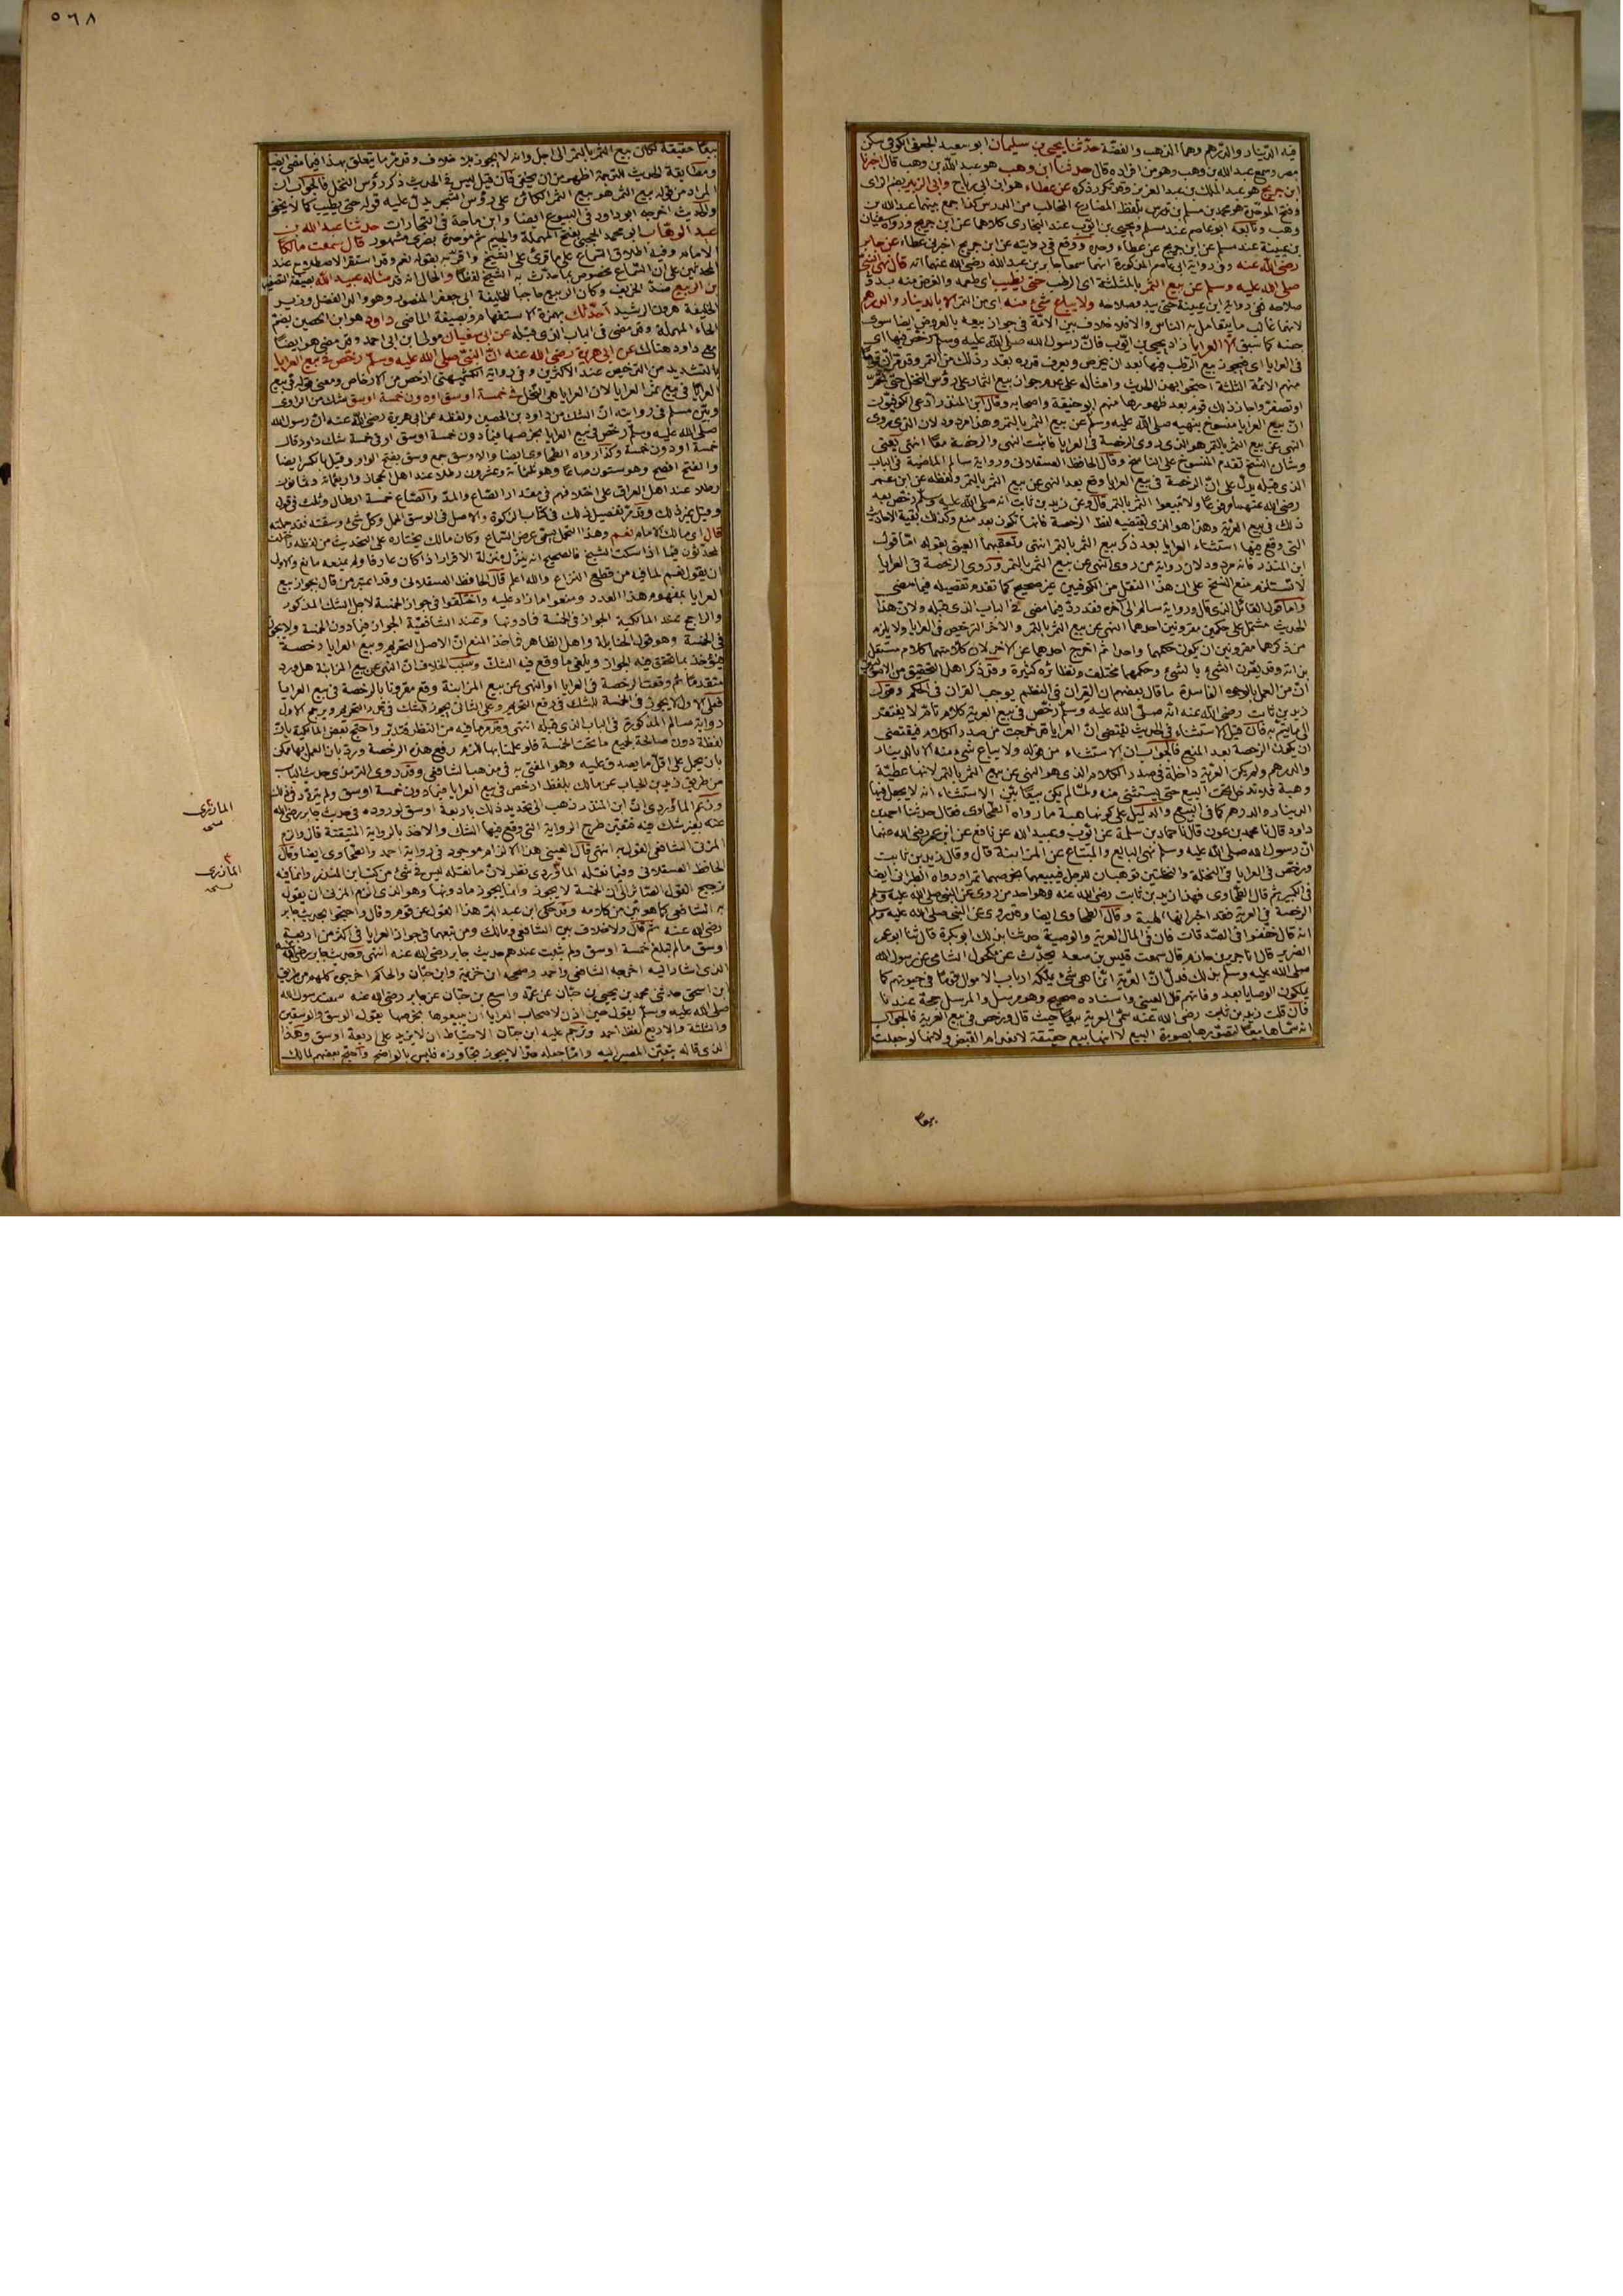 فيه الدينار والدرهم وهما الذهب والفضة حدثنا يحيى بن سليمان ابو سعيد الجعفي الكوفي سكن
مصر وسمع عبد الله بن وهب وهو من افراده قال حدثنا ابن وهب هو عبد الله بن وهب قال اخبرنا
ابن جريج هو عبد الملك بن عبد العزيز وقد تكرر ذكره عن عطاء هو ابن ابي رباح وابي الزبير بضم الزاى
وفتح الموحدة هو محمد بن مسلم بن تدرس بلفظ المضارع المخاطب من الدرس كذا جمع بينهما عبد الله بن
وهب وتابعه ابو عاصم عند مسلم ويحيى بن ايوب عند الطحاوى كلاهما عن ابن جريج ورواه سفيان
بن عيينة عند مسلم عن ابن جريج عن عطاء وحده ووقع في روايته عن ابن جريج اخبرني عطاء عن جابر
رضى الله عنه وفى رواية ابى عاصم المذكورة انهما سمعا جابر بن عبد الله رضى الله عنهما انه قال نهى النبى
صلى الله عليه وسلم عن بيع الثمر بالمثلثة اى الرطب حتى يطيب اى طعمه والغرض منه بدو
صلاحه ففى رواية ابن عيينة حتى يبدو صلاحه ولا يباع شئ منه اى من الثمر الا بالدينار والدرهم
لانهما غالب ما يتعامل به الناس والا فلا خلاف بين الامة فى جواز بيعه بالعروض ايضا سوى
جنسه كما سبق الا العرايا زاد يحيى بن ايوب فان رسول الله صلى الله عليه وسلم رخص فيها اى
فى العرايا اى فيجوز بيع الرطب فيها بعد ان يخرص ويعرف قدره بقدر ذلك من التمر
منهم الائمة الثلثة احتجوا بهذا الحديث وامثاله على عدم جواز بيع الثمار على رؤس النخل حتى تحمر
او تصفر واجاز ذلك قوم بعد ظهورها منهم ابو حنيفة واصحابه وقال ابن المنذر ادعى الكوفيون
ان بيع العرايا منسوخ بنهيه صلى الله عليه وسلم عن بيع الثمر بالتمر وهذا مردود لان الذى روى
النهى عن بيع الثمر بالتمر هو الذى روى الرخصة فى العرايا فاثبت النهى والرخصة معا انتهى يعنى
وشان النسخ تقدم المنسوخ على الناسخ وقال الحافظ العسقلانى ورواية سالم الماضية فى الباب
الذى قبله يدل على ان الرخصة فى بيع العرايا وقع بعد النهى عن بيع الثمر بالتمر ولفظه عن ابن عمر
رضى الله عنهما مرفوعا ولا تبيعوا الثمر بالتمر قال وعن زيد بن ثابت انه صلى الله عليه وسلم رخص بعد
ذلك فى بيع العرية وهذا هو الذى يقتضيه لفظ الرخصة فانها تكون بعد منع وكذلك بقية الاحاديث
التى وقع فيها استثناء العرايا بعد ذكر بيع الثمر بالتمر انتهى وتعقبهما العينى بقوله اما قول
ابن المنذر فانه مردود لان رواية من روى النهى عن بيع الثمر بالتمر وروى الرخصة فى العرايا
لا تستلزم منع النسخ على ان هذا النقل من الكوفيين غير صحيح كما تقدم تفصيله فيما مضى
واما قول القائل الذى قال ورواية سالم الى اخره فقد رد فيما مضى فى الباب الذى قبله ولان هذا
الحديث مشتمل على حكمين مقرونين احدهما النهى عن بيع الثمر بالتمر والاخر الترخيص فى العرايا ولا يلزم
من ذكرهما مقرونين ان يكون حكمهما واحدا ثم اخرج احدهما عن الاخر لان كلا منهما كلام مستقل
بذاته وقد يقرن الشئ بالشئ وحكمهما مختلف ونظائره كثيرة وقد ذكر اهل التحقيق من الاصوليين
ان من العمل بالوجوه الفاسدة ما قال بعضهم ان القران فى النظم يوجب القران فى الحكم وقول
زيد بن ثابت رضى الله عنه انه صلى الله عليه وسلم رخص فى بيع العرية كلام تام لا يفتقر
الى ما يتم به فان قيل الاستثناء فى الحديث يقتضى ان العرايا قد خرجت من صدر الكلام فيقتضى
ان يكون الرخصة بعد المنع فالجواب ان الاستثناء من قوله ولا يباع شئ منه الا بالدينار
والدرهم ولم يكن العرية داخلة فى صدر الكلام الذى هو النهى عن بيع الثمر بالتمر لانها عطية
وهبة فلا تدخل تحت البيع حتى يستثنى منه ولما لم يكن بيعا بين الاستثناء انه لا يجعل فيها
الدينار والدرهم كما فى البيع والدليل على كونها هبة ما رواه الطحاوى فقال حدثنا احمد بن
داود قال نا محمد بن عون قال نا حماد بن سلمة عن ايوب وعبيد الله عن نافع عن ابن عمر رضى الله عنهما
ان رسول الله صلى الله عليه وسلم نهى البايع والمبتاع عن المزابنة قال وقال زيد بن ثابت
ورخص فى العرايا فى النخلة والنخلتين توهبان للرجل فيبيعهما بخرصهما تمرا ورواه الطبرانى ايضا
فى الكبير ثم قال الطحاوى فهذا زيد بن ثابت رضى الله عنه وهو احد من روى عن النبى صلى الله عليه وسلم
الرخصة فى العرية فقد اخبر انها الهبة وقال الطحاوى ايضا وقد روى عن النبى صلى الله عليه وسلم
انه قال خففوا فى الصدقات فان فى المال العرية والوصية حدثنا بذلك ابو بكرة قال ثنا ابو عمر
الضرير قال انا جرير بن حازم قال سمعت قيس بن سعد يحدث عن مكحول الشامى عن رسول الله
صلى الله عليه وسلم بذلك فدل ان العرية انما هى شئ يملكه ارباب الاموال قوما فى حيوتهم كما
يملكون الوصايا بعد وفاتهم قال العينى واسناده صحيح وهو مرسل والمرسل حجة عندنا
فان قلت زيد بن ثابت رضى الله عنه سمى العرية بيعا حيث قال ورخص فى بيع العرية فالجواب
انه سماها بيعا لتصورها بصورة البيع لا انها بيع حقيقة لانعدام القبض ولانها لو جعلت
٥٦٨
بيعا حقيقة لكان بيع الثمر بالتمر الى اجل وانه لا يجوز بلا خلاف وقد مر ما يتعلق بهذا فيما مضى ايضا
ومطابقة الحديث للترجمة اظهر من ان يخفى فان قيل ليس فى الحديث ذكر رؤس النخل فالجواب ان
المراد من قوله بيع الثمر هو بيع الثمر الكائن على رؤس الشجر يدل عليه قوله حتى يطيب كما لا يخفى
والحديث اخرجه ابو داود فى البيوع ايضا وابن ماجة فى التجارات حدثنا عبد الله بن
عبد الوهاب ابو محمد الحجبى بفتح المهملة والجيم ثم موحدة بصرى مشهور قال سمعت مالكا
الامام وفيه اطلاق السماع على ما قرئ على الشيخ واقر به بقوله نعم وقد استقر الاصطلاح عند
المحدثين على ان السماع مخصوص بما حدث به الشيخ لفظا والحال انه قد سأله عبيد الله بصيغة التصغير
بن الربيع ضد الخريف وكان الربيع حاجبا للخليفة ابى جعفر المنصور وهو والد الفضل وزير
الخليفة هرون الرشيد أحدثك بهمزة الاستفهام وبصيغة الماضى داود هو ابن الحصين بضم
الحاء المهملة وقد مضى فى الباب الذى قبله عن ابى سفيان مولى ابن ابى احمد وقد مضى هو ايضا
مع داود هنالك عن ابى هريرة رضى الله عنه ان النبى صلى الله عليه وسلم رخص فى بيع العرايا
بالتشديد من الترخيص عند الاكثرين وفى رواية الكشميهنى ارخص من الارخاص ومعنى قوله فى بيع
العرايا فى بيع ثمر العرايا لان العرايا هى النخل فى خمسة اوسق او دون خمسة اوسق شك من الراوى
وبين مسلم فى روايته ان الشك من داود بن الحصين ولفظه عن ابى هريرة رضى الله عنه ان رسول الله
صلى الله عليه وسلم رخص فى بيع العرايا بخرصها فيما دون خمسة اوسق او فى خمسة شك داود قال
خمسة او دون خمسة وكذا رواه الطحاوى ايضا والاوسق جمع وسق بفتح الواو وقيل بالكسر ايضا
والفتح افصح وهو ستون صاعا وهو ثلثمائة وعشرون رطلا عند اهل الحجاز واربعمائة وثمانون
رطلا عند اهل العراق على اختلافهم فى مقدار الصاع والمد والصاع خمسة ارطال وثلث فى قول
وقيل غير ذلك وقد مر تفصيل ذلك فى كتاب الزكوة والاصل فى الوسق الحمل وكل شئ وسقته فقد حملته
قال اى مالك الامام نعم وهذا التحمل يسمى عرض السماع وكان مالك يختاره على التحديث من لفظه واختلف
المحدثون فيما اذا سكت الشيخ فالصحيح انه ينزل منزلة الاقرار اذا كان عارفا ولم يمنعه مانع والاولى
ان يقول نعم لما فيه من قطع النزاع والله اعلم قال الحافظ العسقلانى وقد اعتبر من قال بجواز بيع
العرايا بمفهوم هذا العدد ومنعوا ما زاد عليه واختلفوا فى جواز الخمسة لاجل الشك المذكور
والراجح عند المالكية الجواز فى الخمسة فما دونها وعند الشافعية الجواز فيما دون الخمسة ولا يجوز
فى الخمسة وهو قول الحنابلة واهل الظاهر فماخذ المنع ان الاصل التحريم وبيع العرايا رخصة
فيؤخذ بما تحقق فيه الجواز ويلغى ما وقع فيه الشك وسبب الخلاف ان النهى عن بيع المزابنة هل ورد
متقدما ثم وقعت الرخصة فى العرايا او النهى عن بيع المزابنة وقع مقرونا بالرخصة فى بيع العرايا
فعلى الاول لا يجوز فى الخمسة للشك فى رفع التحريم وعلى الثانى يجوز للشك فى قدر التحريم ويرجح الاول
رواية سالم المذكورة فى الباب الذى قبله انتهى وقد مر ما فيه من النظر فتدبر واحتج بعض المالكية بان
لفظة دون صالحة لجميع ما تحت الخمسة فلو عملنا بها لزم رفع هذه الرخصة ورد بان العمل بها ممكن
بان يحمل على اقل ما يصدق عليه وهو المفتى به فى مذهب الشافعى وقد روى الترمذى حديث الباب
من طريق زيد بن الحباب عن مالك بلفظ ارخص فى بيع العرايا فيما دون خمسة اوسق ولم يتردد فى ذلك
وزعم الماوردى ان ابن المنذر ذهب الى تحديد ذلك باربعة اوسق لوروده فى حديث جابر رضى الله
عنه بغير شك فيه فتعين طرح الرواية التى وقع فيها الشك والاخذ بالرواية المتيقنة قال والزم
المزنى الشافعى القول به انتهى قال العينى هذا الالزام موجود فى رواية احمد والطحاوى ايضا وقال
الحافظ العسقلانى وفيما نقله الماوردى نظر لان ما نقله ليس فى شئ من كتب ابن المنذر وانما فيه
ترجيح القول الصائر الى ان الخمسة لا يجوز وانما يجوز ما دونها وهو الذى الزم المزنى ان يقول
به الشافعى كما هو بين من كلامه وقد حكى ابن عبد البر هذا القول عن قوم وقال واحتجوا بحديث جابر
رضى الله عنه ثم قال ولا خلاف بين الشافعى ومالك ومن تبعهما فى جواز العرايا فى اكثر من اربعة
اوسق مالم تبلغ خمسة اوسق ولم يثبت عندهم حديث جابر رضى الله عنه انتهى وحديث جابر رضى الله عنه
الذى اشار اليه اخرجه الشافعى واحمد وصححه ابن خزيمة وابن حبان والحاكم اخرجوه كلهم من طريق
ابن اسحق حدثنى محمد بن يحيى بن حبان عن عمه واسع بن حبان عن جابر رضى الله عنه سمعت رسول الله
صلى الله عليه وسلم يقول حين اذن لاصحاب العرايا ان يبيعوها بخرصها يقول الوسق والوسقين
والثلثة والاربع لفظ احمد وترجم عليه ابن حبان الاحتياط ان لا يزيد على اربعة اوسق وهذا
الذى قاله يتعين المصير اليه واما جعله حدا لا يجوز تجاوزه فليس بالواضح واحتج بعضهم لمالك
المازرى
نسخه
٣
المازرى
نسخه